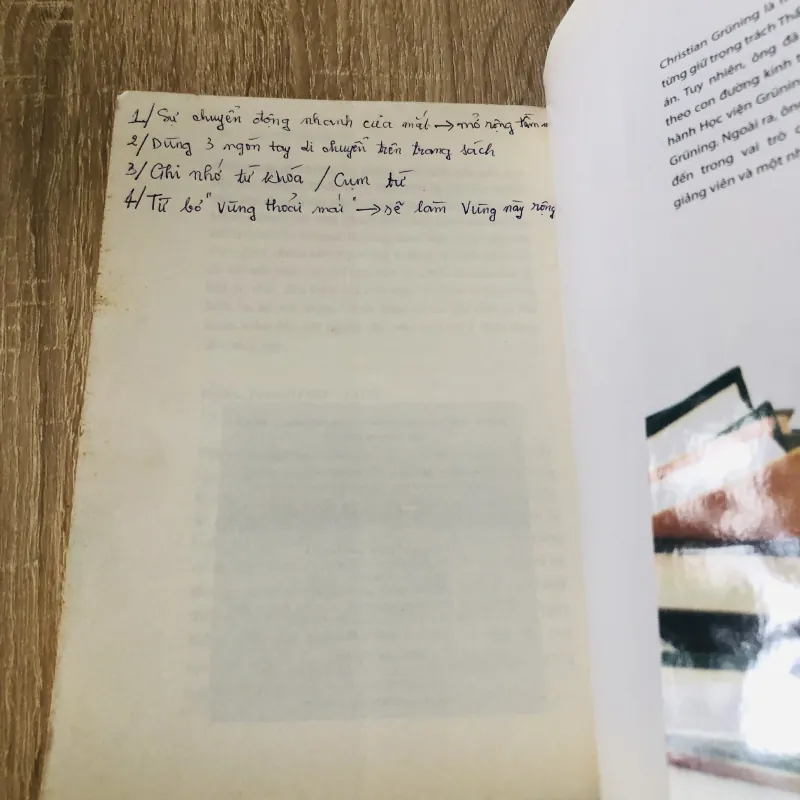 1/ Sự chuyển động nhanh của mắt → mở rộng tầm
2/ Dùng 3 ngón tay di chuyển trên trang sách
3/ Ghi nhớ từ khóa / Cụm từ
4/ Từ bỏ "Vùng thoải mái" → sẽ làm Vùng này rộng
Christian Grüning là
từng giữ trọng trách
án. Tuy nhiên, ông đã
theo con đường kinh
hành Học viện Grüning
Grüning. Ngoài ra, ông
đến trong vai trò
giảng viên và một